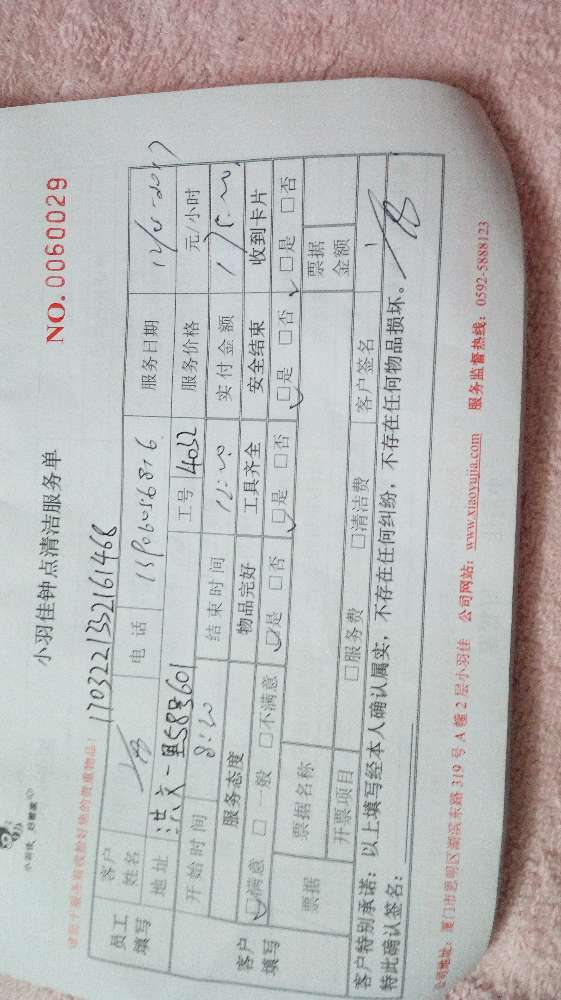 小羽佳 好管家
请您于服务前收捡好您的贵重物品!
小羽佳钟点清洁服务单
NO. 0060029
1703221332161468
员工填写
客户姓名 电话 13906056876 服务日期
地址 洪文一里58号601 工号 4032 服务价格 元/小时
开始时间 8:20 结束时间 实付金额
客户填写
服务态度 物品完好 工具齐全 安全结束 收到卡片
☑满意 □一般 □不满意 ☑是 □否 ☑是 □否 ☑是 □否 ☑是 □否
票据 票据名称 票据金额
开票项目 □服务费 □清洁费 客户签名
客户特别承诺:以上填写经本人确认属实,不存在任何纠纷,不存在任何物品损坏。
特此确认签名:
公司地址:厦门市思明区湖滨东路 319 号 A 幢 2 层小羽佳 公司网站:www.xiaoyujia.com 服务监督热线:0592-5888123